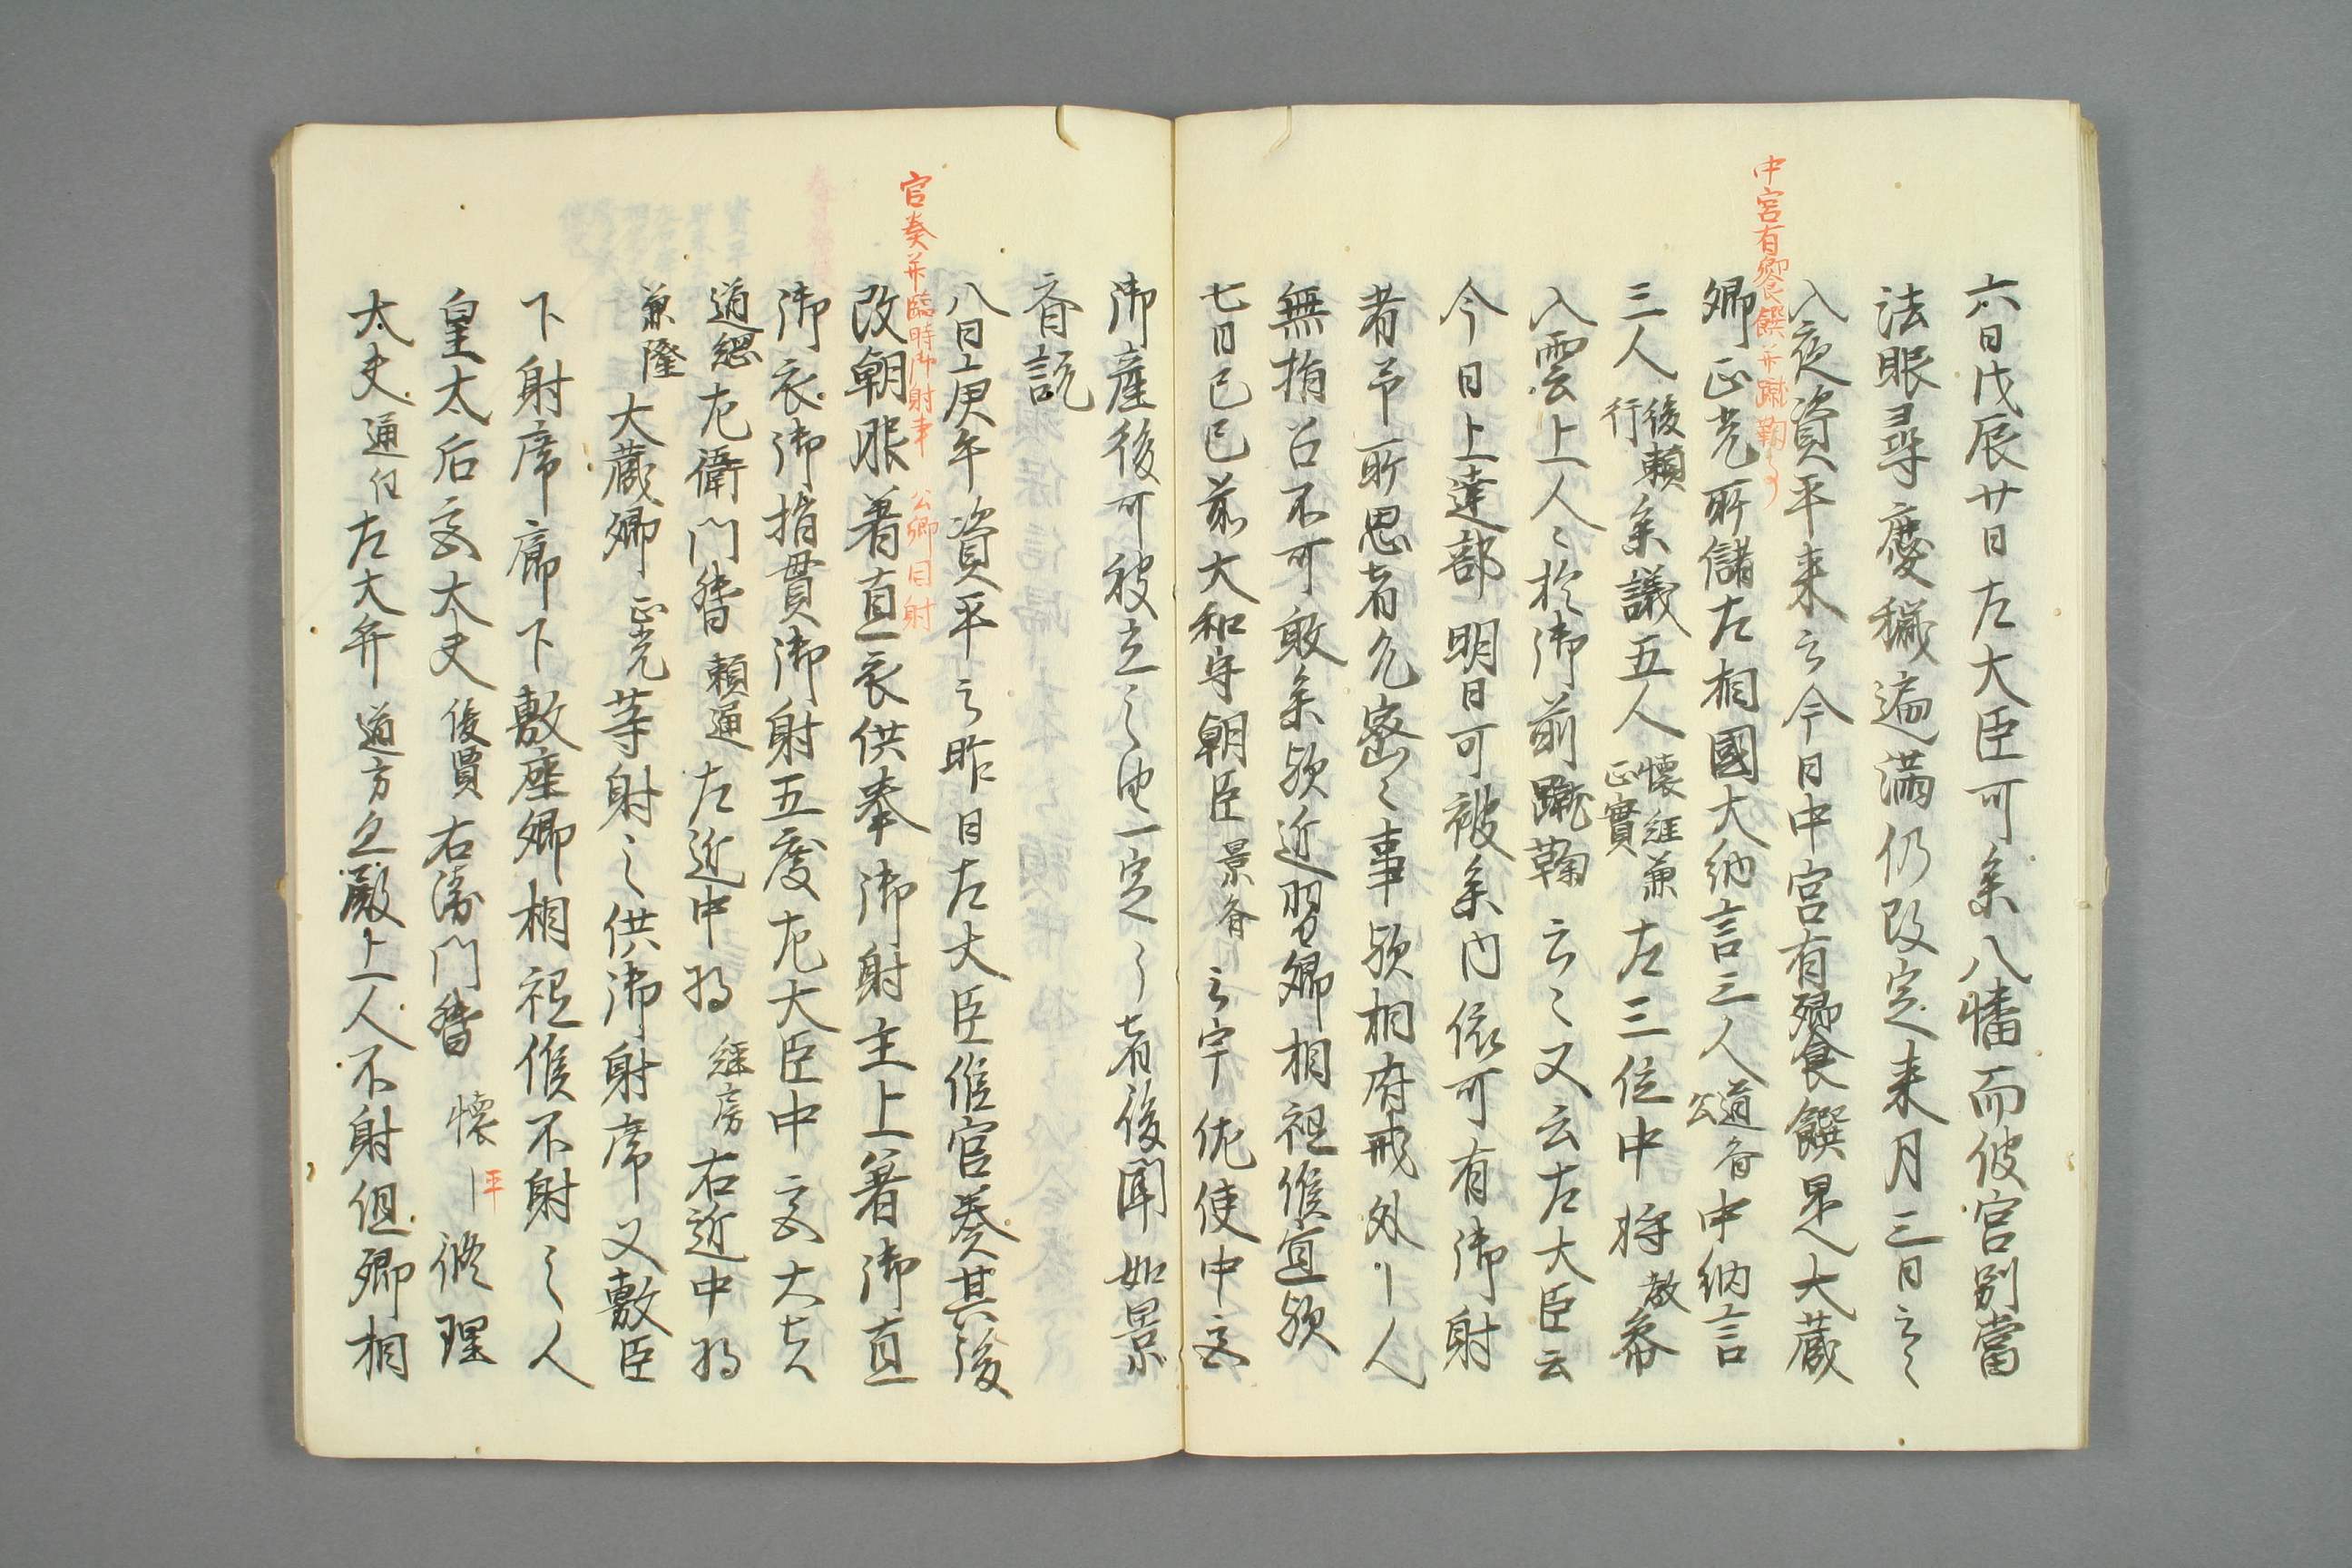 六日戊辰廿日左大臣可参八幡而彼宮別當
法眼尋慶穢遍満仍改定来月三日云々
中宮有饗饌并蹴鞠事
入夜資平来云今日中宮有饗饌是大蔵
卿正光所儲左相國大納言三人道斉公中納言
三人俊賢行参議五人懐経兼正實左三位中将教参
入雲上人々於御前蹴鞠云々又云左大臣云
今日上達部明日可被参内依可有御射
者予所思者只密々事歟相府戒外人
無指召不可敢参歟近習卿相祗候宜歟
七日己巳前大和守朝臣景斉云宇佐使中宮
御産後可被立之由一定了者後聞如景
斉説
官奏并臨時御射事 公卿同射
八日庚午資平云昨日左大臣候官奏其後
改朝服着直衣供奉御射主上著御直
御衣御指貫御射五度左大臣中宮大夫
道綱左衛門督頼通左近中将経房右近中将
兼隆大蔵卿正光等射之供御射席又敷臣
下射席廊下敷座卿相祗候不射之人
皇太后宮大夫俊賢右衛門督懐平修理
大夫通任左大弁道方之殿上人不射但卿相